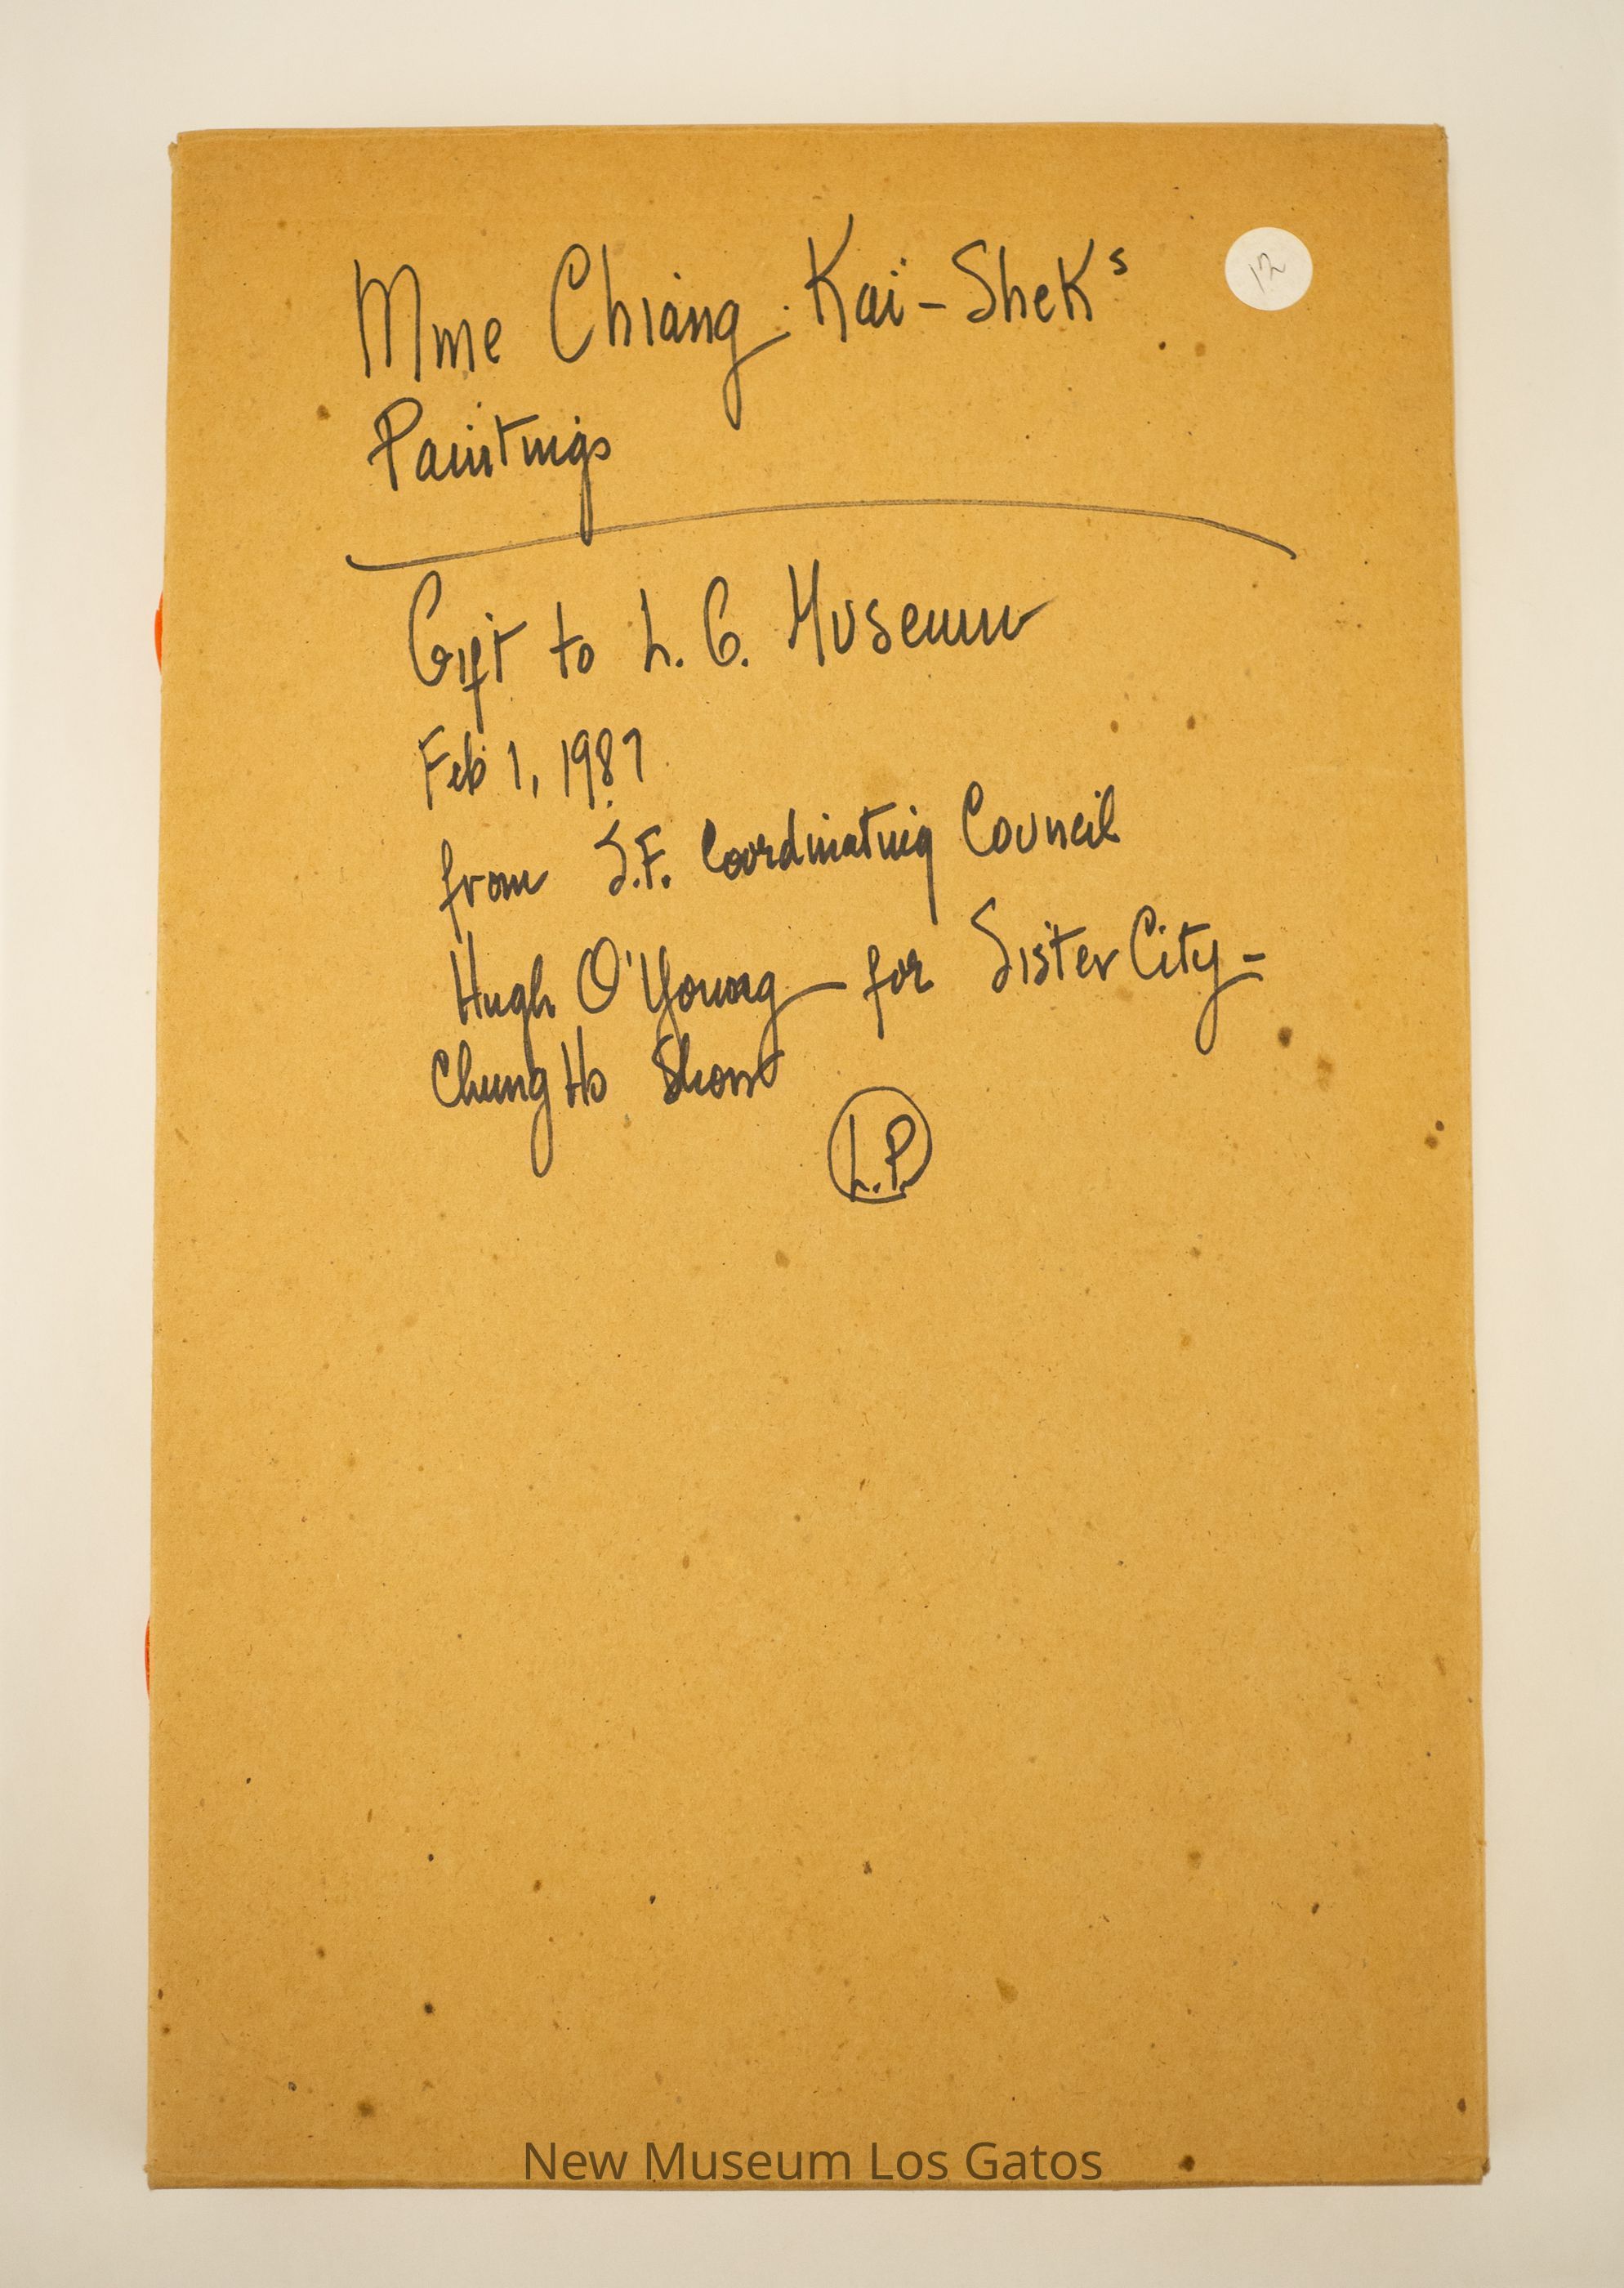 Mme Chiang Kaï-Shek's
12
Paintings
Gift to L. G. Museum
Feb 1, 1987
from S.F. Coordinating Council
Hugh O'Young - for Sister City -
Chung Ho Show
L.P.
New Museum Los Gatos